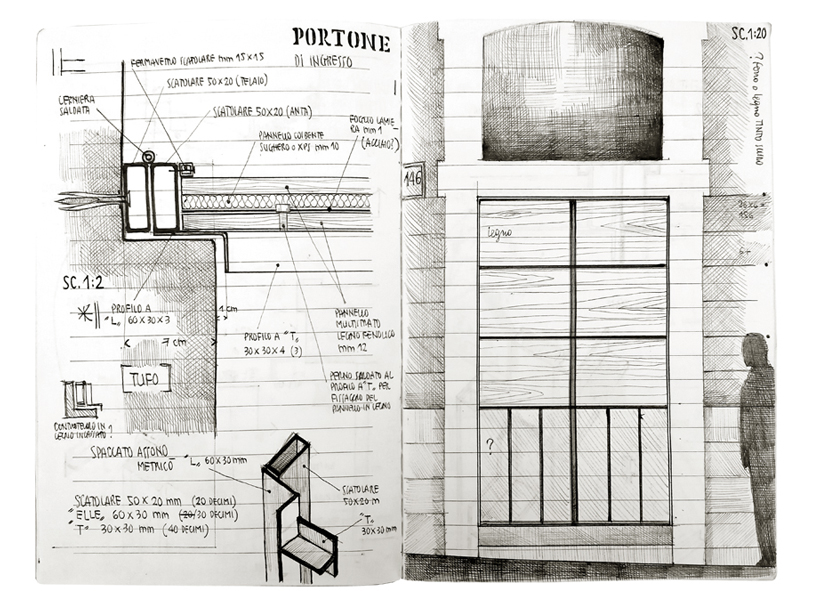 PORTONE
DI INGRESSO
FERMAVETRO SCATOLARE mm 15x15
SCATOLARE 50x20 (TELAIO)
CERNIERA
SALDATA
SCATOLARE 50x20 (ANTA)
FOGLIO LAMIE-
RA mm 1
(ACCIAIO?)
PANNELLO COIBENTE
SUGHERO o XPS mm 10
SC. 1:2
PROFILO A
"L" 60x30x3
1 cm
7 cm
TUFO
PROFILO A "T"
30x30x4 (3)
PANNELLO
MULTISTRATO
LEGNO FENOLICO
mm 12
PERNO SALDATO AL
PROFILO A "T" PER
FISSAGGIO DEL
PANNELLO IN LEGNO
CONTROTELAIO IN
LEGNO INCASSATO?
SPACCATO ASSONO
METRICO
"L" 60x30mm
SCATOLARE
50x20 m
"T"
30x30 mm
SCATOLARE 50x20 mm (20 DECIMI)
"ELLE" 60x30 mm (20/30 DECIMI)
"T" 30x30 mm (40 DECIMI)
SC. 1:20
146
legno
?